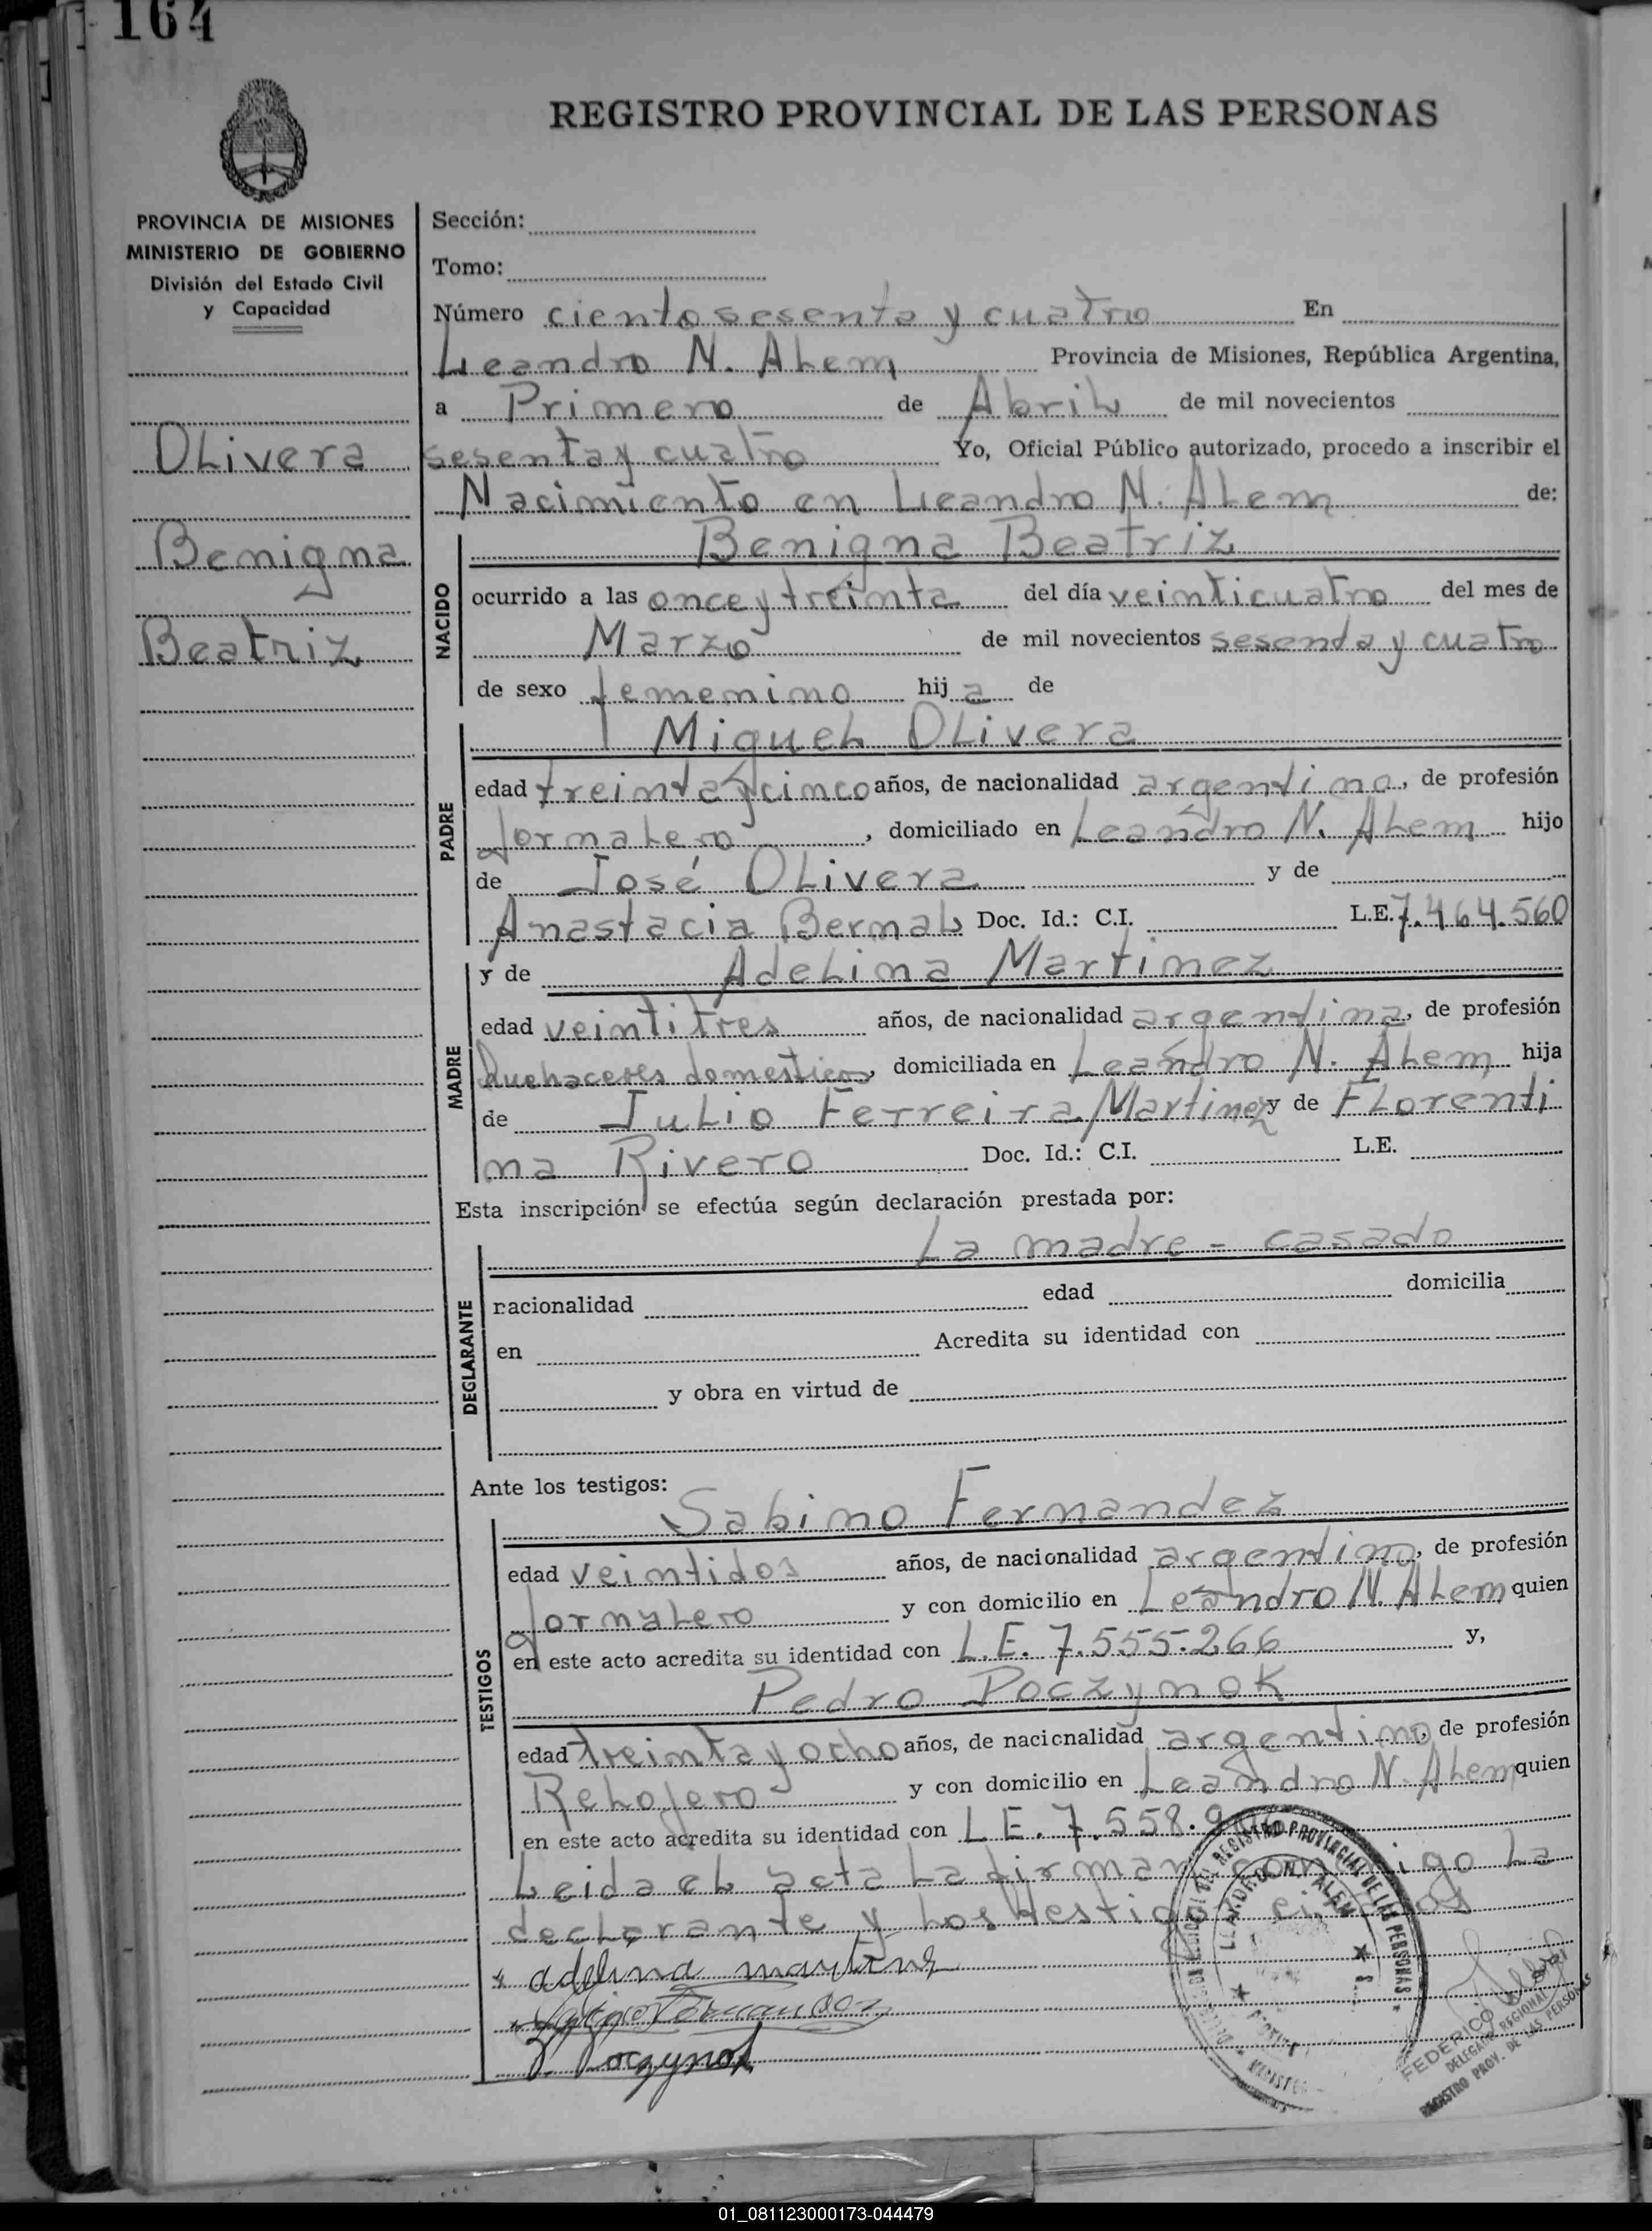 164
REGISTRO PROVINCIAL DE LAS PERSONAS
PROVINCIA DE MISIONES
MINISTERIO DE GOBIERNO
División del Estado Civil
y Capacidad
Olivera
Benigna
Beatriz
Sección:
Tomo:
Número ciento sesenta y cuatro En
Leandro N. Alem Provincia de Misiones, República Argentina,
a Primero de Abril de mil novecientos
sesenta y cuatro Yo, Oficial Público autorizado, procedo a inscribir el
Nacimiento en Leandro N. Alem de:
NACIDO
Benigna Beatriz
ocurrido a las once y treinta del día veinticuatro del mes de
Marzo de mil novecientos sesenda y cuatro
de sexo femenino hij a de
PADRE
Miguel Olivera
edad treinta y cinco años, de nacionalidad argentino, de profesión
Jornalero, domiciliado en Leandro N. Alem hijo
de José Olivera y de
Anastacia Bernal Doc. Id.: C.I. L.E. 7.464.560
MADRE
y de Adelina Martinez
edad veintitres años, de nacionalidad argentina, de profesión
Quehaceres domesticos, domiciliada en Leandro N. Alem hija
de Julio Ferreira Martinez y de Florenti
na Rivero Doc. Id.: C.I. L.E.
Esta inscripción se efectúa según declaración prestada por:
DECLARANTE
La madre - casado
nacionalidad edad domicilia
en Acredita su identidad con
y obra en virtud de
Ante los testigos:
TESTIGOS
Sabino Fernandez
edad veintidos años, de nacionalidad argentino, de profesión
Jornalero y con domicilio en Leandro N. Alem quien
en este acto acredita su identidad con L.E. 7.555.266 y,
Pedro Poczynok
edad treinta y ocho años, de nacionalidad argentino, de profesión
Relojero y con domicilio en Leandro N. Alem quien
en este acto acredita su identidad con L.E. 7.558.
Leida el acta la firman conmigo la
declarante y los testigos citados
adelina martinez
Sabino Fernandez
P. Poczynok
REGISTRO PROVINCIAL DE LAS PERSONAS
LEANDRO N. ALEM
FEDERICO
DELEGADO REGIONAL
REGISTRO PROV. DE LAS PERSONAS
01_081123000173-044479